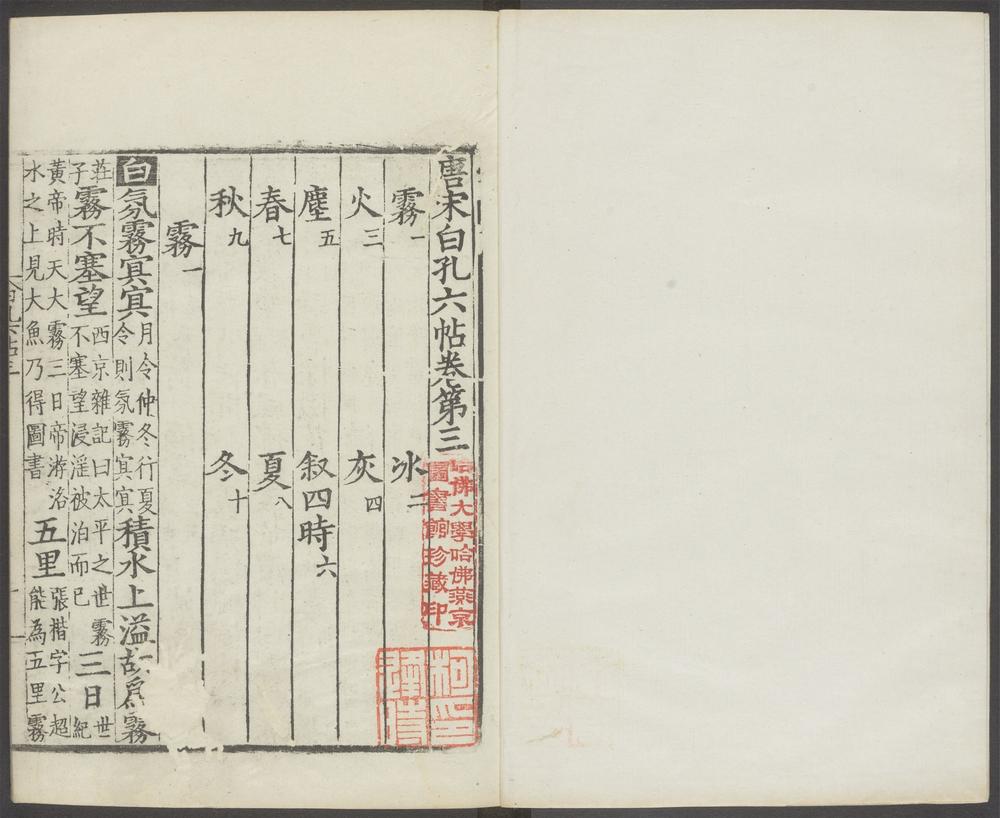 唐宋白孔六帖卷第三
霧一 冰二
火三 灰四
塵五 叙四時六
春七 夏八
秋九 冬十
霧一
白氛霧㝠㝠月令仲冬行夏令則氛霧㝠㝠積水上溢故爲霧
莊子霧不塞望西京雜記曰太平之世霧不塞望浸淫被泊而已三日世紀
黃帝時天大霧三日帝游洛水之上見大魚乃得圖書五里張楷字公超能為五里霧
哈佛大學哈佛燕京
圖書館珍藏印